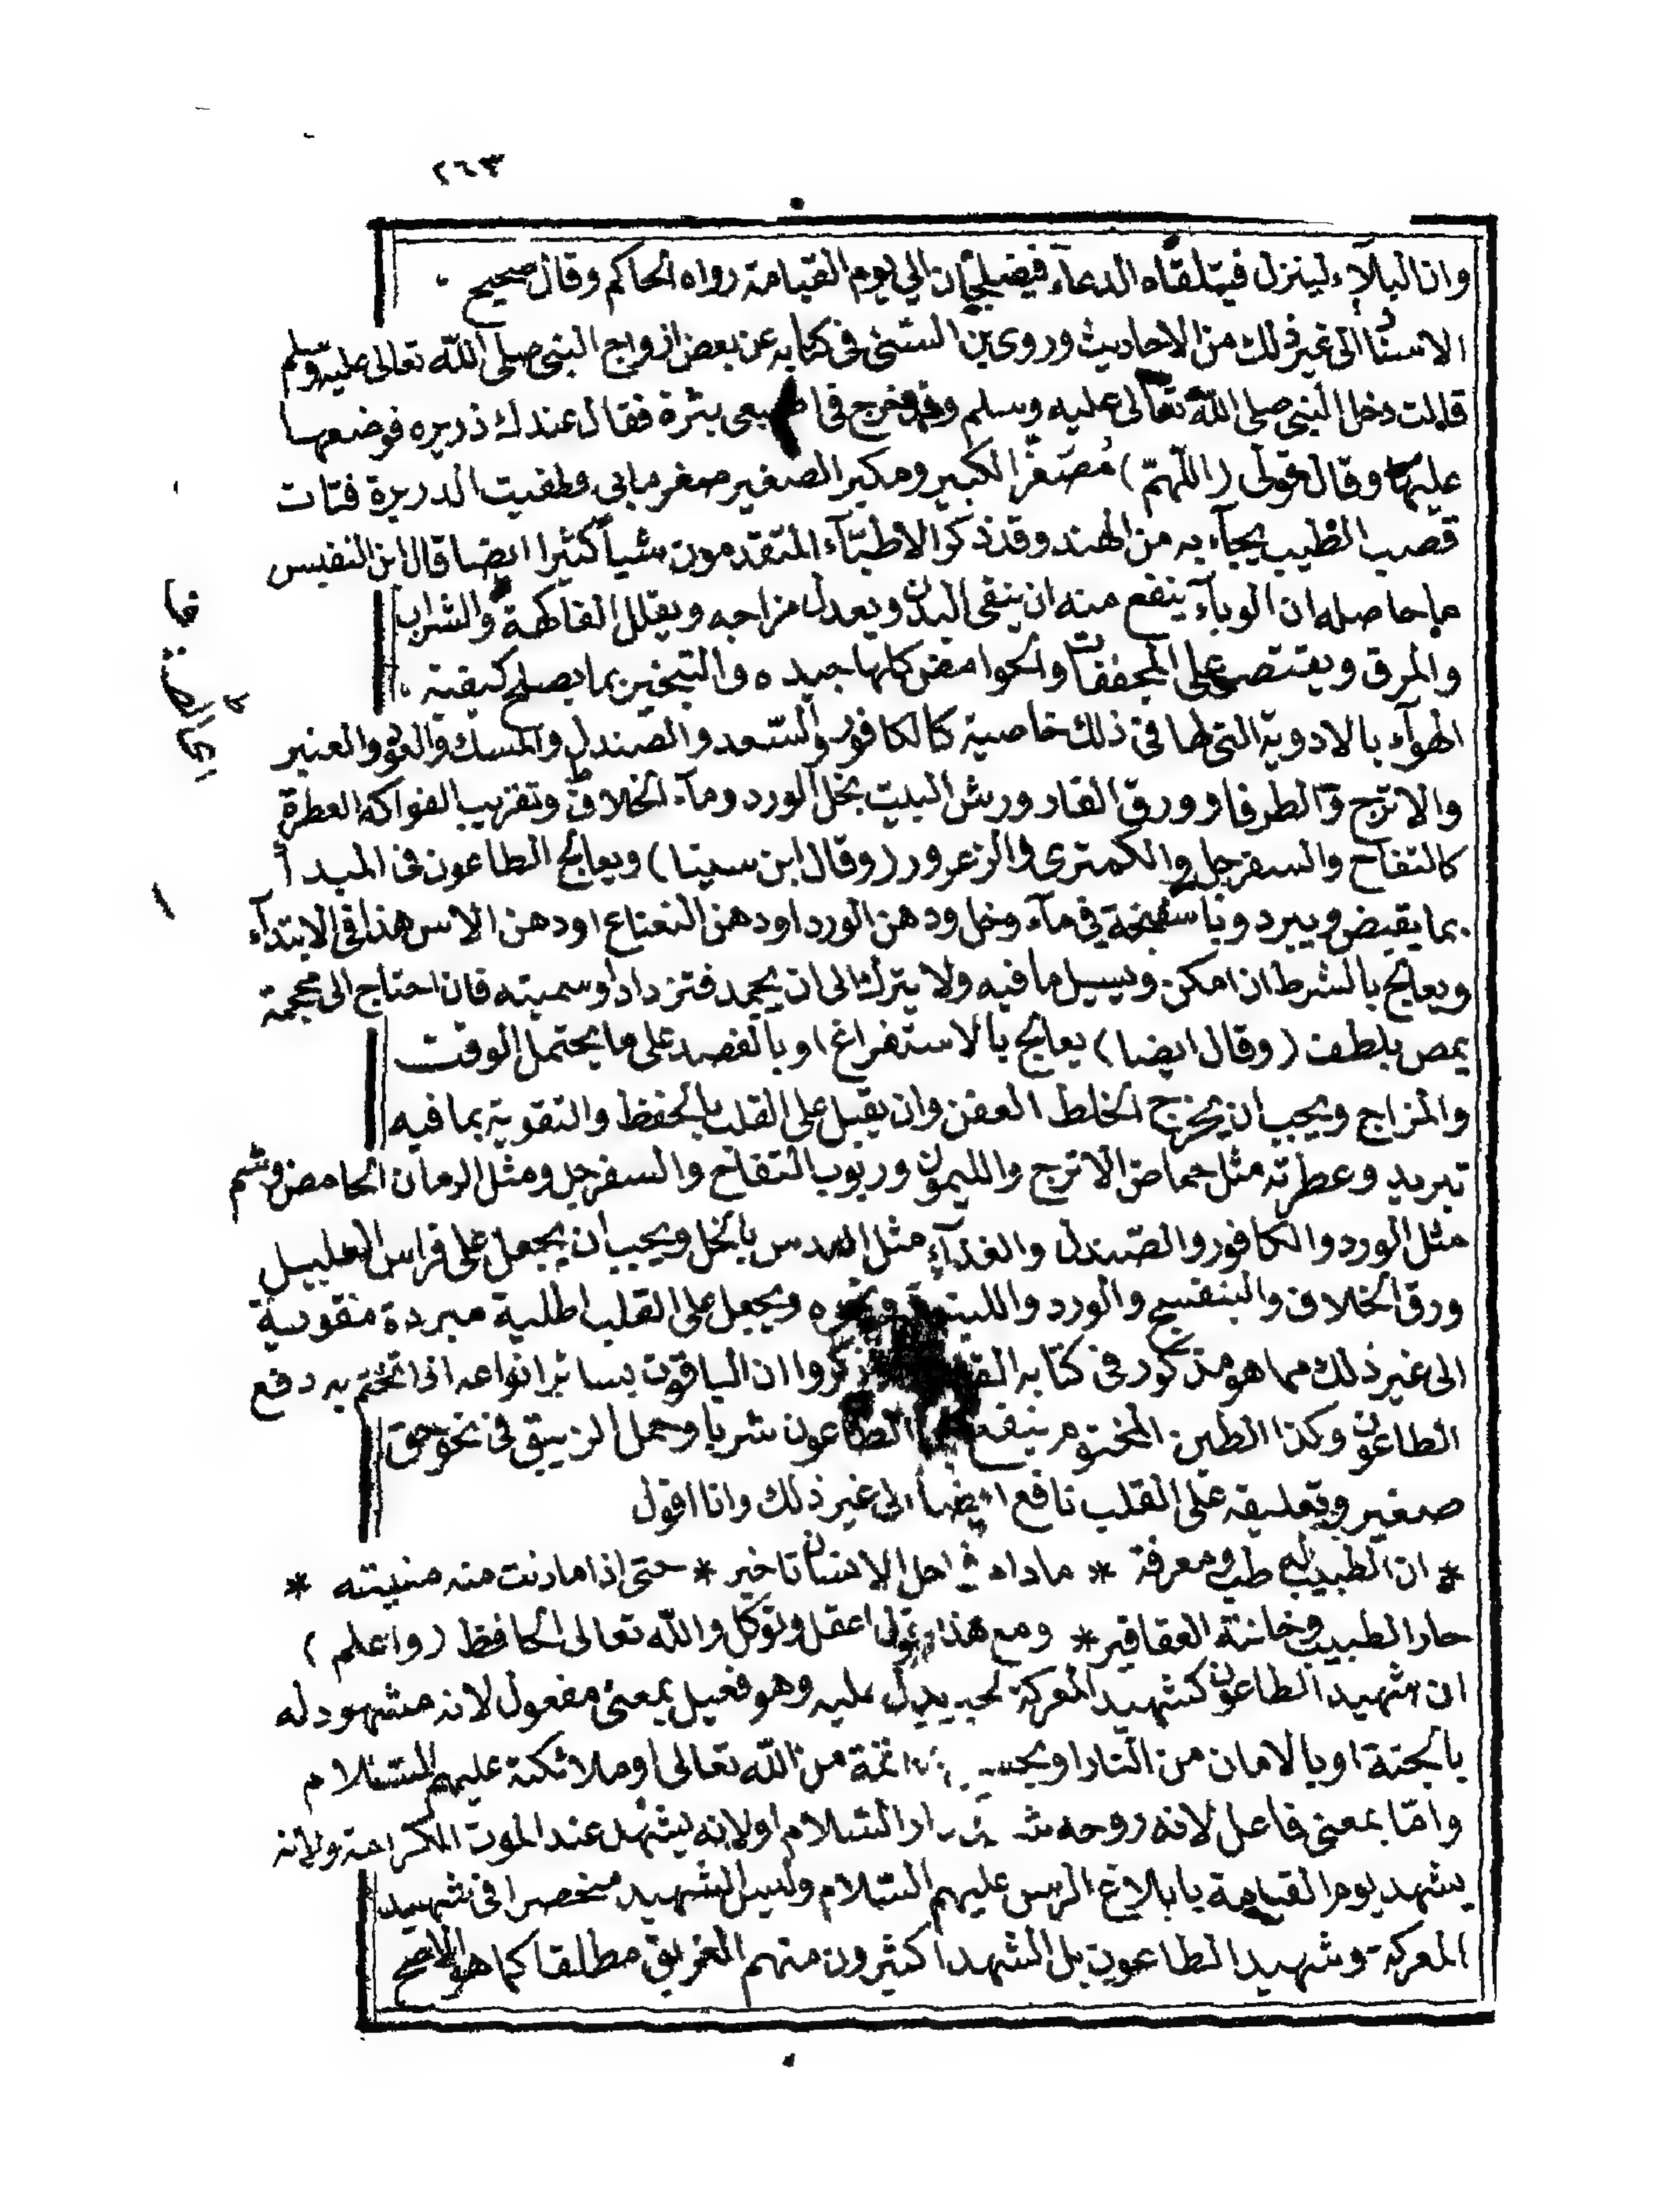 ٢٦٣
وان البلآء لينزل فيتلقاه الدعاء فيضلجان الي يوم القيامة رواه الحاكم وقال صحيح
الاسناد الى غير ذلك من الاحاديث وروى بن السنى فى كتابه عن بعض ازواج النبى صلى الله تعالى عليه وسلم
قالت دخل النبى صلى الله تعالى عليه وسلم وقد خرج فى اصبعى بثرة فقال عندك ذريره فوضعها
عليها وقال قولى (اللهمّ) مُصَغّر الكبير ومكبر الصغير صغر مابى وطفيت الدريرة فتات
قصب الطيب يجآء به من الهند وقد ذكر الاطبّآء المتقدمون شيأ كثيرا ايضا قال ابن النفيس
ما حاصله ان الوبآء ينفع منه ان ينقى البدن ويعدل مزاجه ويقلل الفاكهة والشراب
والمرق ويقتصر على المجففات والحوامض كلها جيده والتبخير بما يصلح كيفية
الهوآء بالادوية التى لها فى ذلك خاصية كالكافور والسّعد والصندل والمسك والعود والعنبر
والاترج والطرفا وورق الغار ورش البيت بخل الورد ومآء الخلاف وتقريب الفواكه العطرة
كالتفاح والسفرجل والكمترى والزعرور (وقال ابن سينا) ويعالج الطاعون فى المبدأ
بما يقبض ويبرد وباسفنجة فى مآء وخل ودهن الورد او دهن النعناع او دهن الاس هذا فى الابتدآء
ويعالج بالشرط ان امكن ويسيل ما فيه ولا يترك الى ان يجمد فتزداد وسميته فان احتاج الى محجمة
يمص بلطف (وقال ايضا) يعالج بالاستفراغ وبالفصد على ما يحتمل الوقت
والمزاج ويجب ان يخرج الخلط العفن وان يقبل على القلب بالحفظ والتقوية بما فيه
تبريد وعطرته مثل حماض الاترج والليمون وربوب التفاح والسفرجل ومثل الرمان الحامض وشم
مثل الورد والكافور والصّندل والغذآء مثل العدس بالخل ويجب ان يجعل على فراش العليل
ورق الخلاف والبنفسج والورد واللينوفر ونحوه ويجعل على القلب اطلية مبردة مقوية
الى غير ذلك مما هو مذكور فى كتابه ذكروا ان الياقوت بسائر انواعه اذا تختم به دفع
الطاعون وكذا الطين المختوم ينفع الطاعون شربا وحمل الزيبق فى نحو حق
صغير وتعليقه على القلب نافع ايضا الى غير ذلك وانا اقول
* ان الطبيب له طب ومعرفة * مادام فى اجل الانسان تاخير * حتى اذا ما دنت منه منيته *
حار الطبيب وخانته العقاقير * ومع هذا اعقل وتوكل والله تعالى الحافظ (واعلم)
ان شهيد الطاعون كشهيد المعركة عليه وهو فعيل بمعنى مفعول لانه مشهود له
بالجنة او بالامان من النار من الله تعالى او ملائكته عليهم السّلام
وامّا بمعنى فاعل لانه روحه دار السّلام او لانه يشهد عند الموت الكرامة ولانه
يشهد يوم القيامة بابلاغ الرسل عليهم السّلام وليس الشهيد منحصرا فى شهيد
المعركة وشهيد الطاعون بل الشهدا كثيرون منهم الغريق مطلقا كما هو الاصح